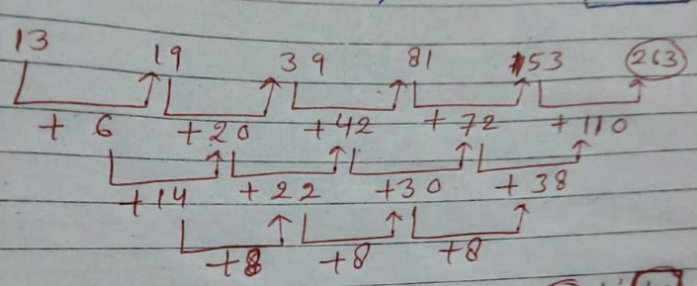 13 19 39 81 153 263
+ 6 +20 +42 + 72 + 110
+14 +22 +30 +38
+8 +8 +8